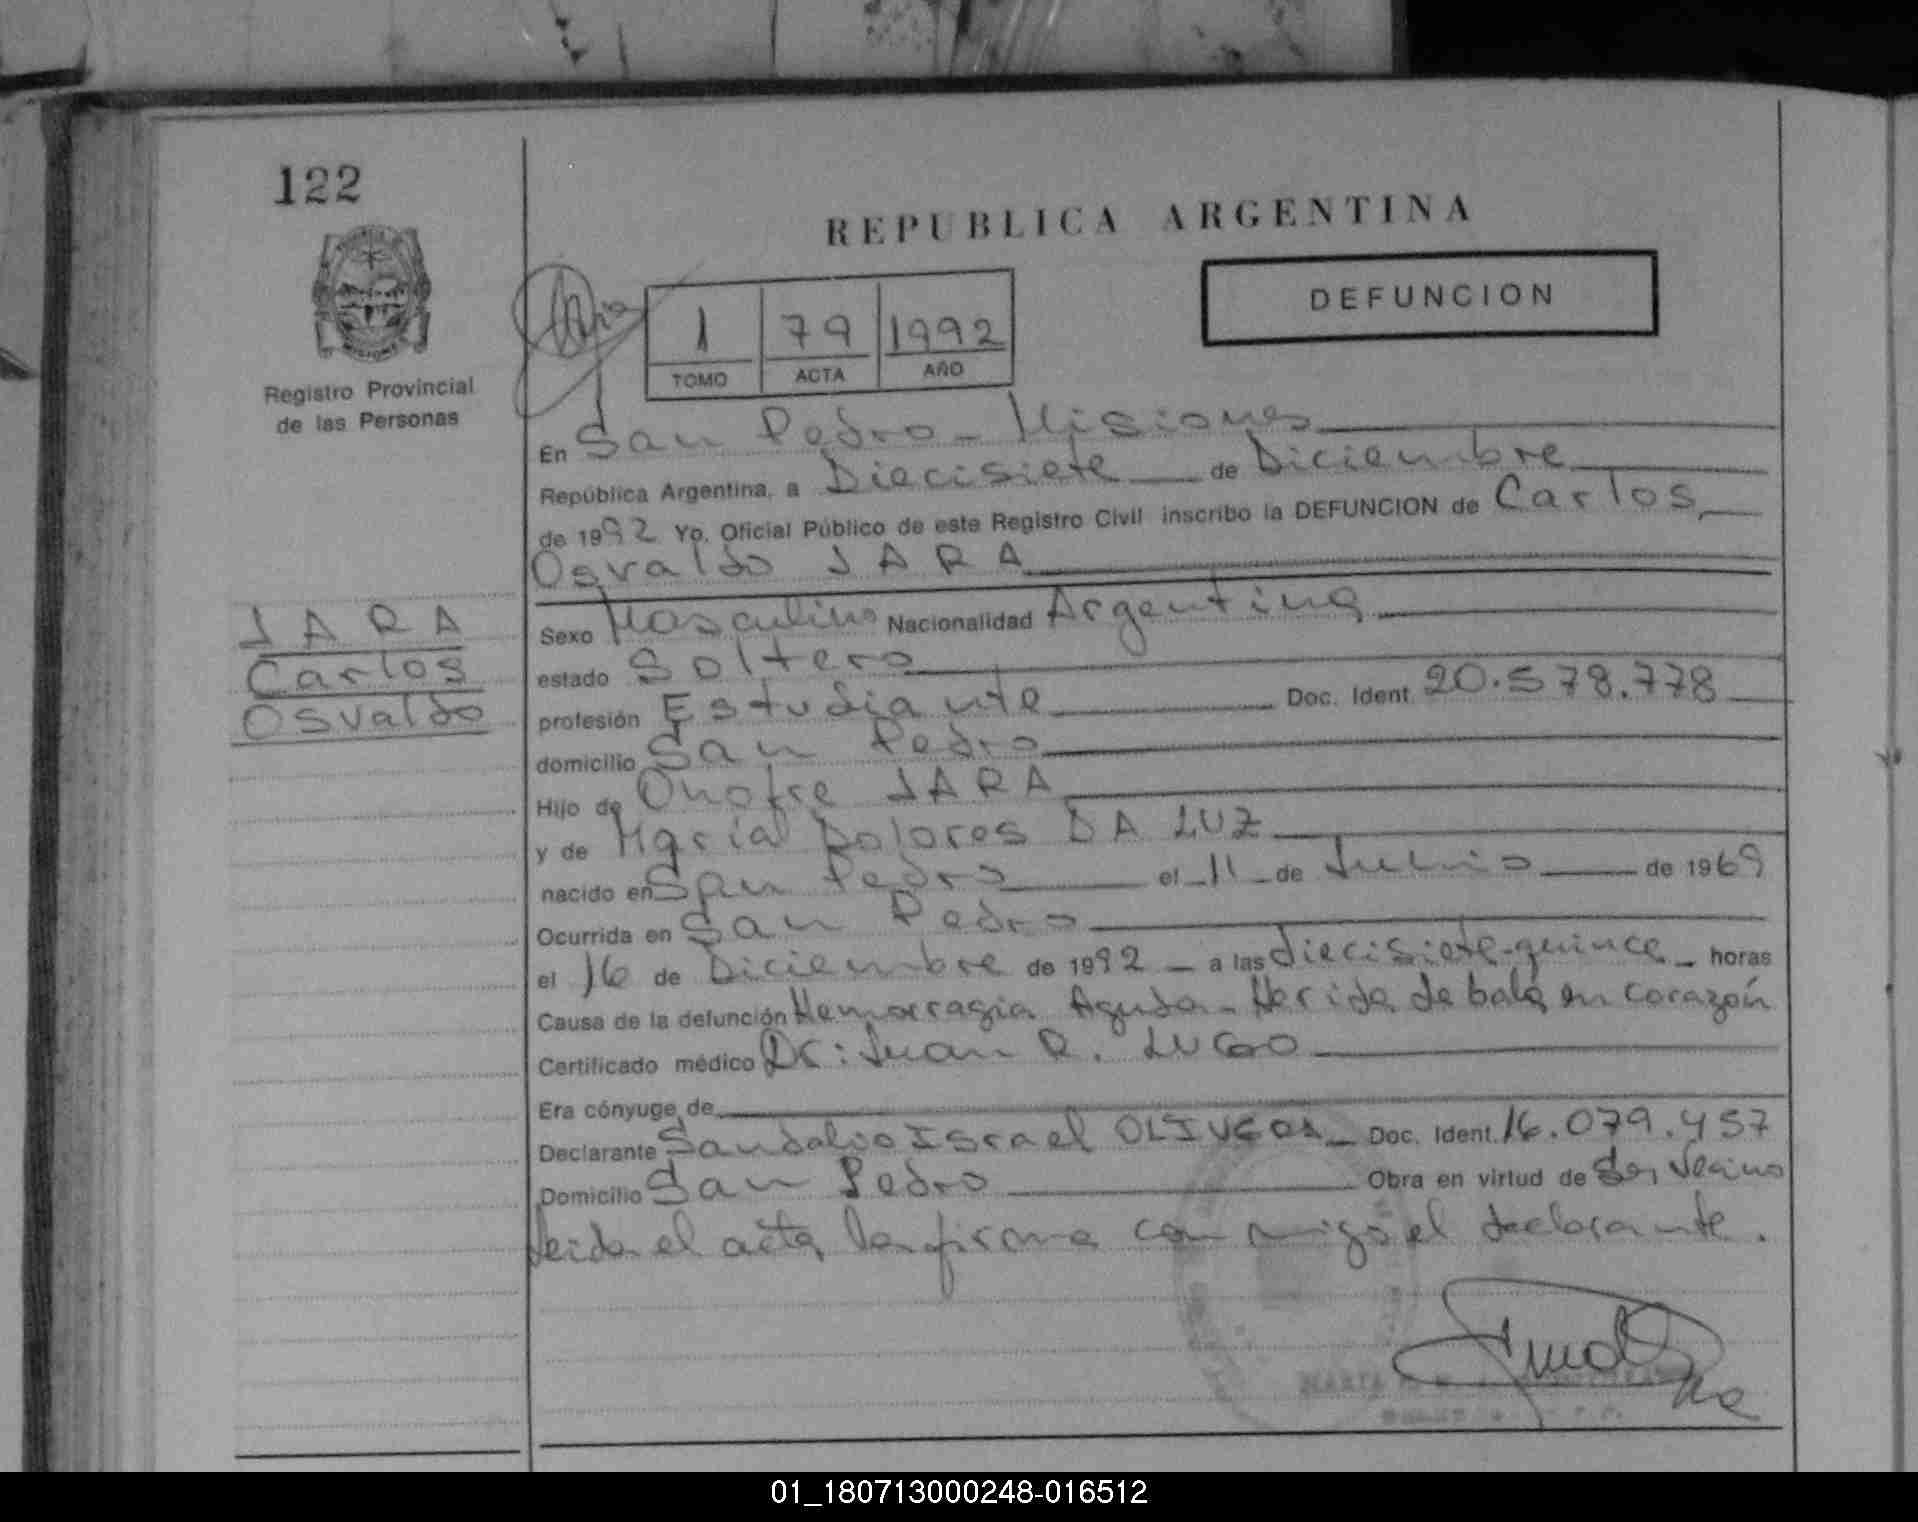 122
REPUBLICA ARGENTINA
DEFUNCION
1 79 1992
TOMO ACTA AÑO
MISIONES
Registro Provincial
de las Personas
En San Pedro - Misiones
República Argentina, a Diecisiete de Diciembre
de 1992 Yo, Oficial Público de este Registro Civil inscribo la DEFUNCION de Carlos
Osvaldo JARA
JARA
Carlos
Osvaldo
Sexo Masculino Nacionalidad Argentina
estado Soltero
profesión Estudiante Doc. Ident. 20.578.778
domicilio San Pedro
Hijo de Onofre JARA
y de María Dolores DA LUZ
nacido en San Pedro el 11 de de 1969
Ocurrida en San Pedro
el 16 de Diciembre de 1992 - a las diecisiete-quince - horas
Causa de la defunción Hemorragia Aguda - Herida de bala en corazón
Certificado médico Dr: Juan R. LUGO
Era cónyuge de
Declarante Sandalio Israel Doc. Ident. 16.079.457
Domicilio San Pedro Obra en virtud de Ser Vecino
Leida el acta la firma con migo el declarante.
01_180713000248-016512